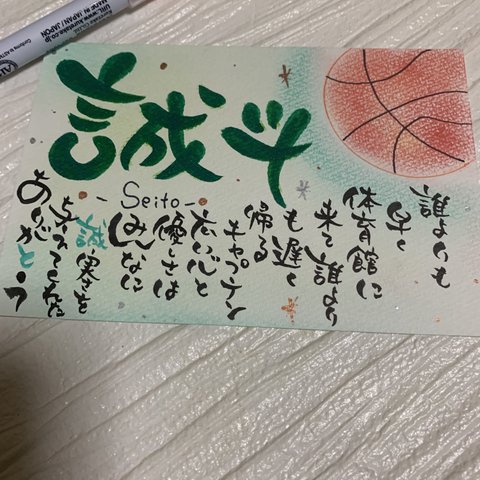 誠斗
- Seito -
誰よりも
早く
体育館に
来て誰より
も遅く
帰る
キャプテン
広い心と
優しさは
みんなに
誠実さを
与えてくれた
ありがとう
MADE IN JAPAN/JAPON